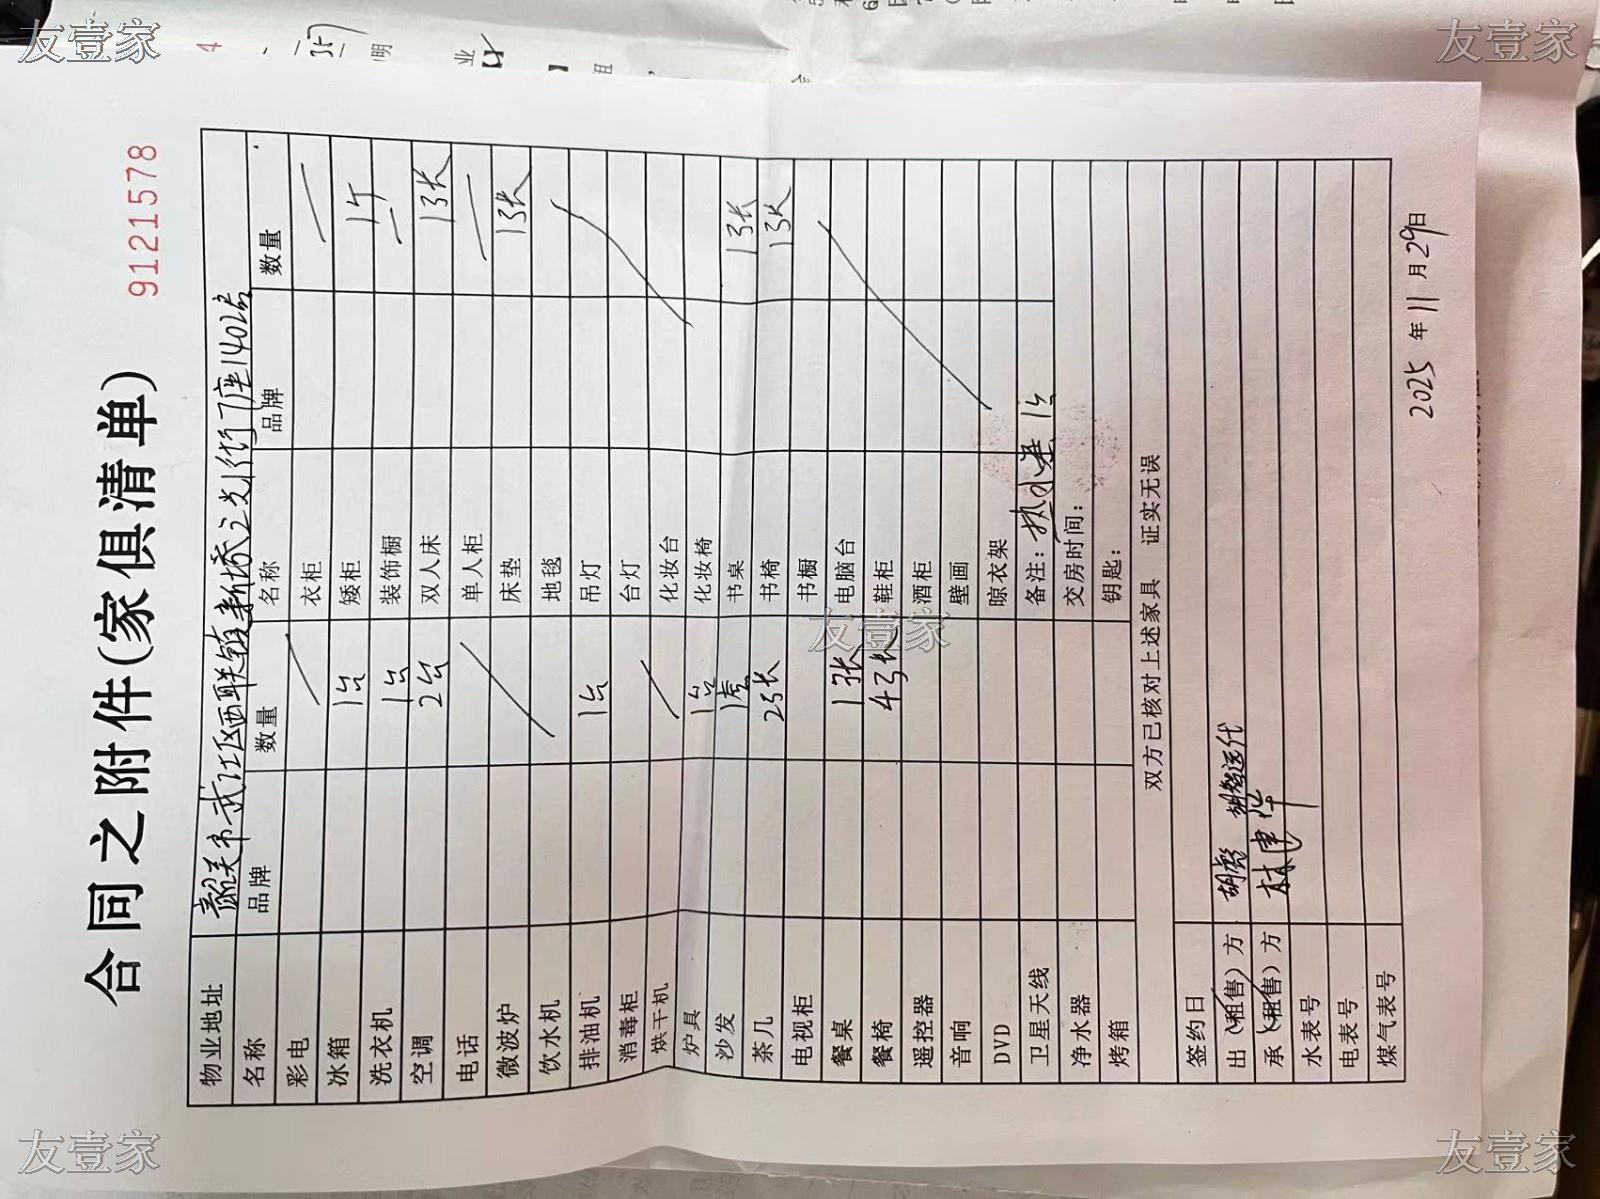 合同之附件(家俱清单)
9121578
物业地址 韶关市武江区西联镇新桥之光街 座1402房
名称 品牌 数量 名称 品牌 数量
彩电 衣柜
冰箱 1台 矮柜 1个
洗衣机 1台 装饰橱
空调 2台 双人床 1张
电话 单人柜
微波炉 床垫 1张
饮水机 地毯
排油机 1台 吊灯
消毒柜 台灯
烘干机 化妆台
炉具 1台 化妆椅
沙发 1套 书桌 1张
茶几 2张 书椅 1张
电视柜 书橱
餐桌 1张 电脑台
餐椅 4张 鞋柜
遥控器 酒柜
音响 壁画
DVD 晾衣架
卫星天线 备注: 热水器 1台
净水器 交房时间:
烤箱 钥匙:
双方已核对上述家具 证实无误
签约日
出(租售)方 胡彪 胡智运代
承(租售)方 林津华
水表号
电表号
煤气表号
2025年11月29日
友壹家
友壹家
友壹家
友壹家
友壹家